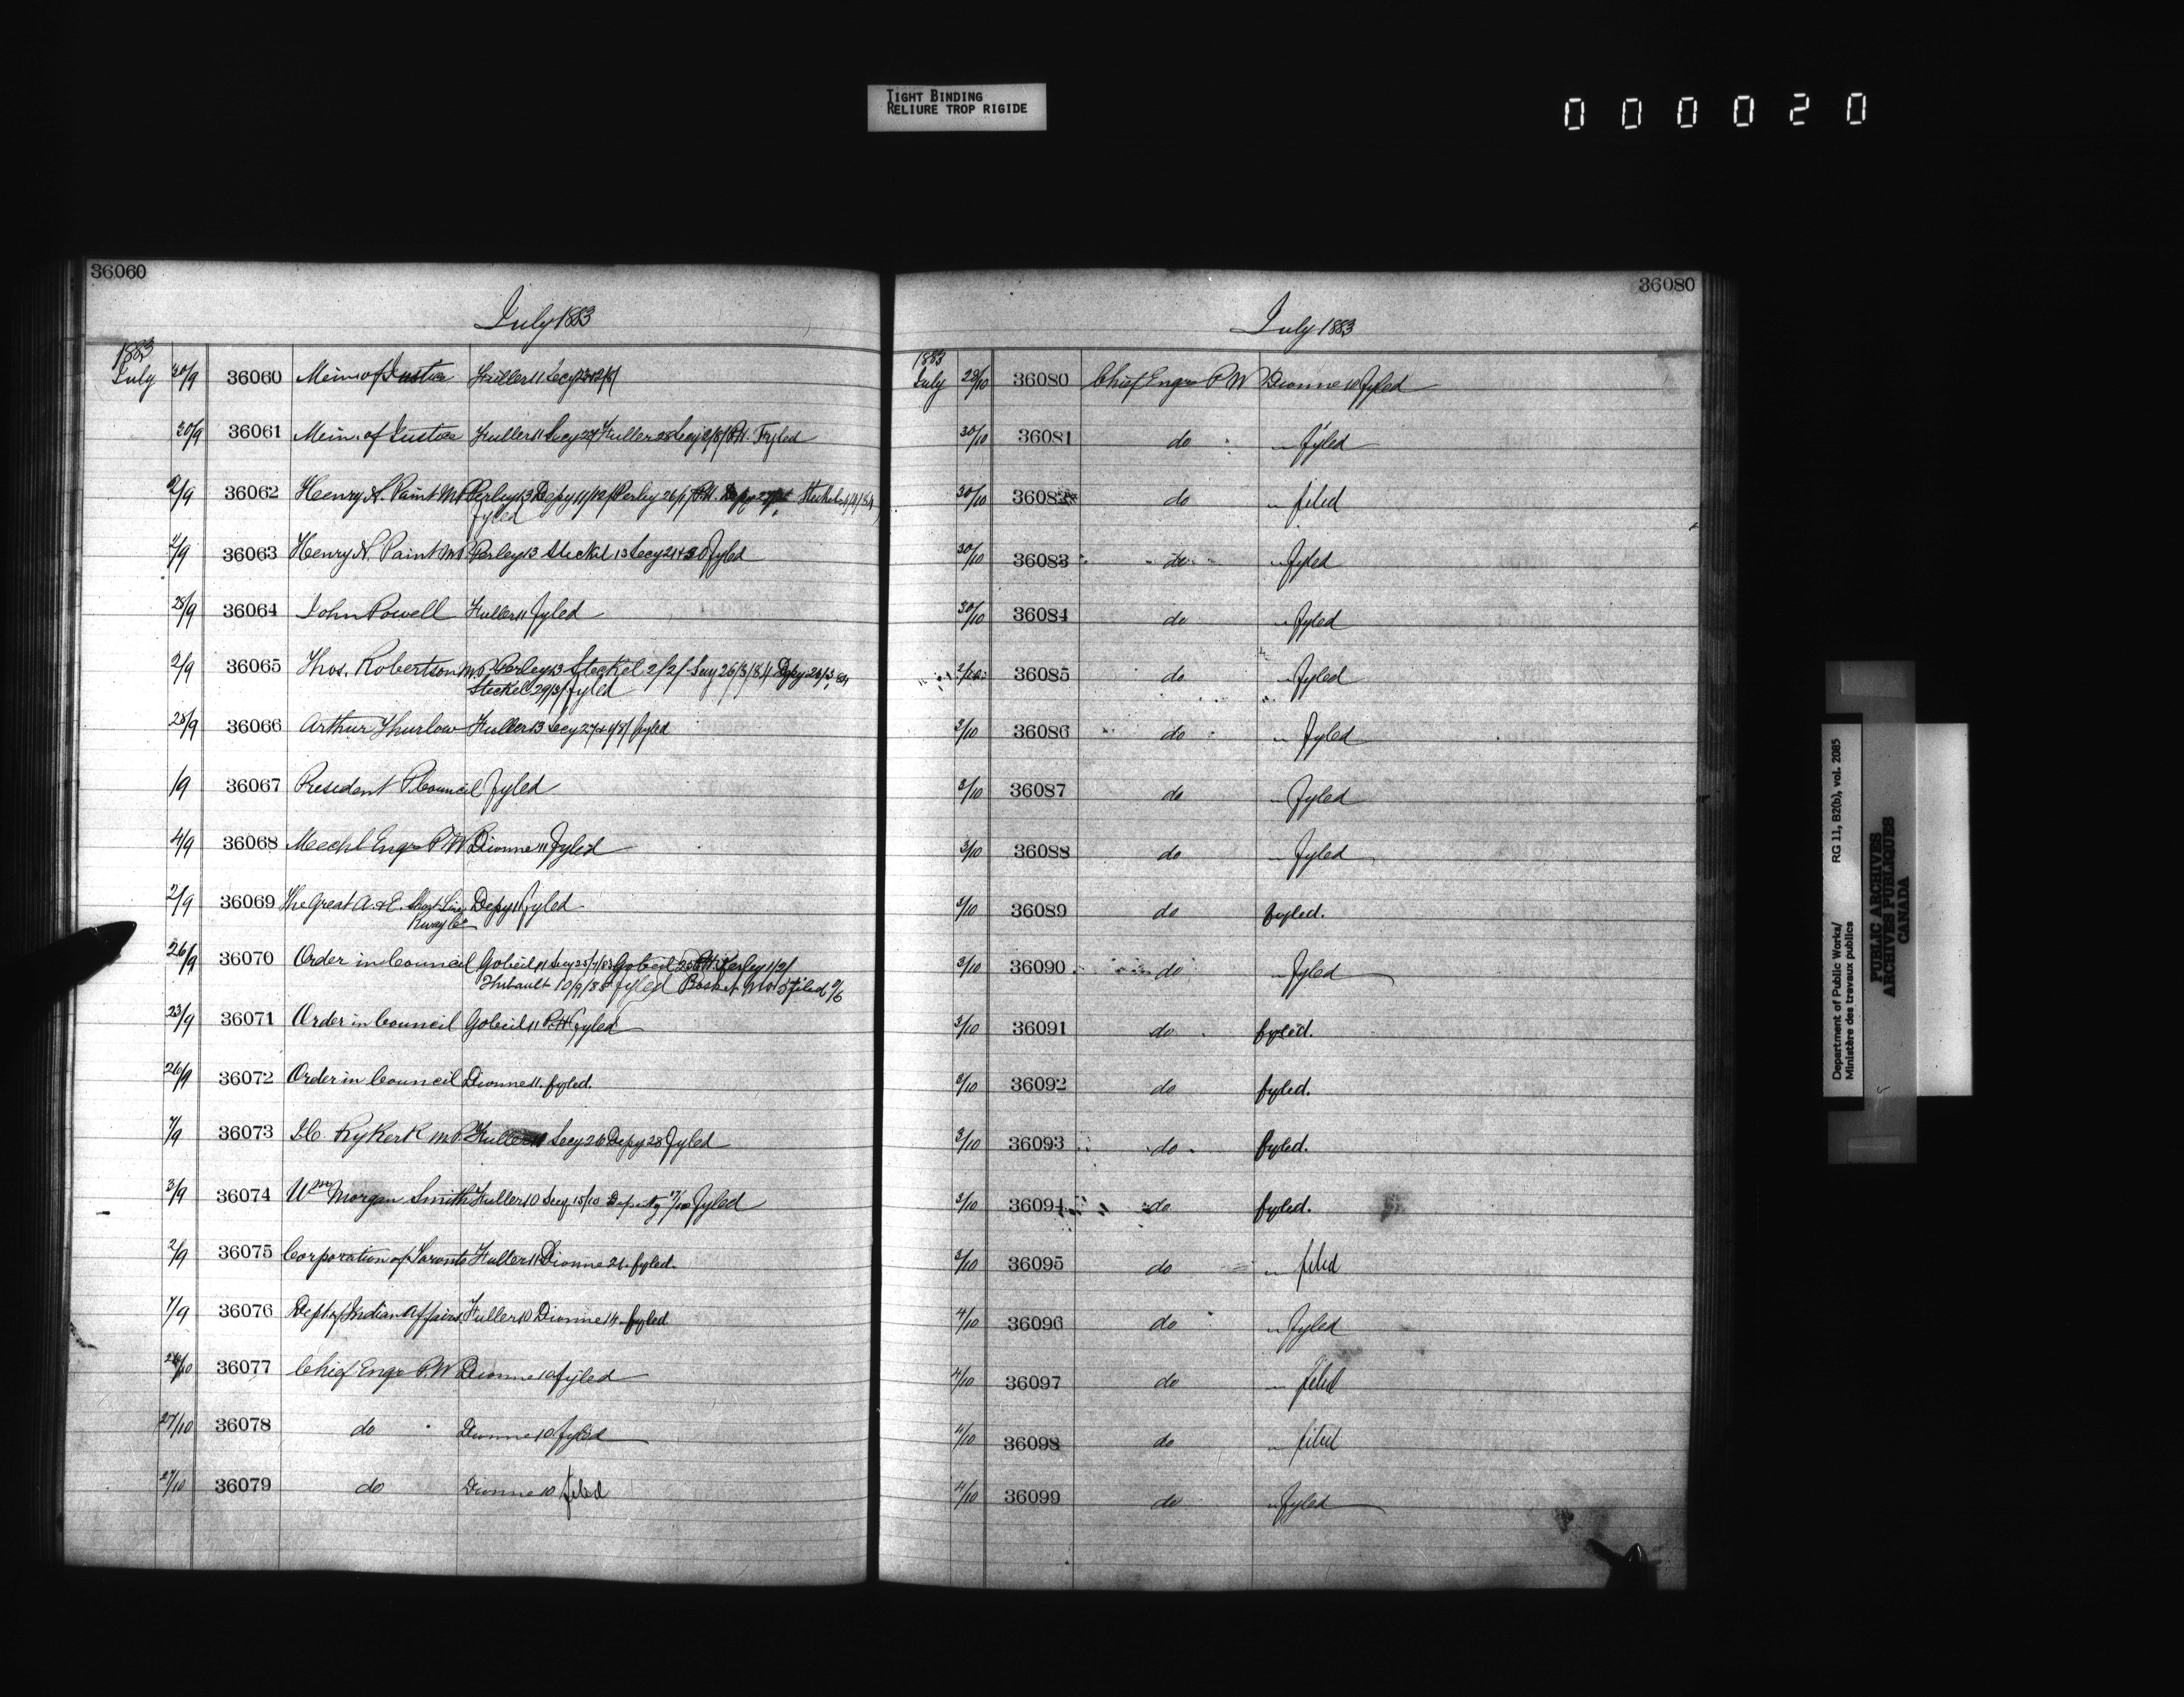 TIGHT BINDING
RELIURE TROP RIGIDE
000020
36060
July 1883
1883
July 30/9 36060 Minr of Justice Fuller 11 Secy 23 & 2/8/
30/9 36061 Minr. of Justice Fuller 11 Secy 27 Fuller 28 Secy 2/8/ P.H. Fyled
2/9 36062 Henry N. Paint M.P. Perley 13 Depy 11/12/ Perley 26/ P.H. Depy Steckel
fyled
4/9 36063 Henry N. Paint M.P. Perley 13 Steckel 13 Secy 21 & 30 fyled
28/9 36064 John Powell Fuller 11 fyled
2/9 36065 Thos. Robertson M.P. Perley 13 Steckel 2/2/ Secy 26/3/84 Depy 26/3/84
Steckel 29/3/ fyled
28/9 36066 Arthur Thurlow Fuller 13 Secy 27 & fyled
/9 36067 President P. Council fyled
4/9 36068 Mechl Engr P W Dionne 11 fyled
2/9 36069 The Great A. & E. Short Line Depy 11 fyled
Rway Co
26/9 36070 Order in Council Gobeil 11 Secy 25/7/83 Gobeil 25 P.H. Perley 1/2/
Thibault 10/9/85 fyled Basket No 5 filed
23/9 36071 Order in Council Gobeil 11 P.H. fyled
26/9 36072 Order in Council Dionne 11. fyled.
7/9 36073 J.C. Rykert M.P. Fuller 11 Secy 26 Depy 28 fyled
3/9 36074 Wm Morgan Smith Fuller 10 Secy 15/10 Deputy 17/10 fyled
2/9 36075 Corporation of Toronto Fuller 11 Dionne 21. fyled.
7/9 36076 Dept of Indian Affairs Fuller 10 Dionne 14. fyled
26/10 36077 Chief Engr P.W Dionne 10 fyled
27/10 36078 do Dionne 10 fyled
27/10 36079 do Dionne 10 filed
36080
July 1883
1883
July 29/10 36080 Chief Engr P W Dionne 10 fyled
30/10 36081 do " fyled
30/10 36082 do " filed
30/10 36083 do " fyled
30/10 36084 do " fyled
2/10 36085 do " fyled
3/10 36086 do " fyled
3/10 36087 do " fyled
3/10 36088 do " fyled
3/10 36089 do fyled.
3/10 36090 do " fyled
3/10 36091 do fyled.
3/10 36092 do fyled.
3/10 36093 do fyled.
3/10 36094 do fyled.
3/10 36095 do " filed
4/10 36096 do " fyled
4/10 36097 do " filed
4/10 36098 do " filed
4/10 36099 do " fyled
Department of Public Works/ RG 11, B2(b), vol. 2085
Ministère des travaux publics
PUBLIC ARCHIVES
ARCHIVES PUBLIQUES
CANADA